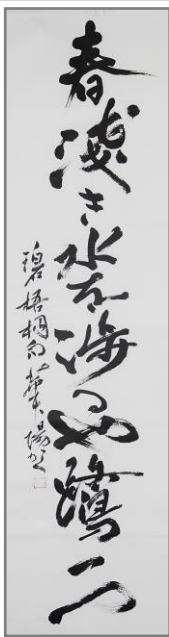 春浅き水を渉るや鷺二つ
碧梧桐句